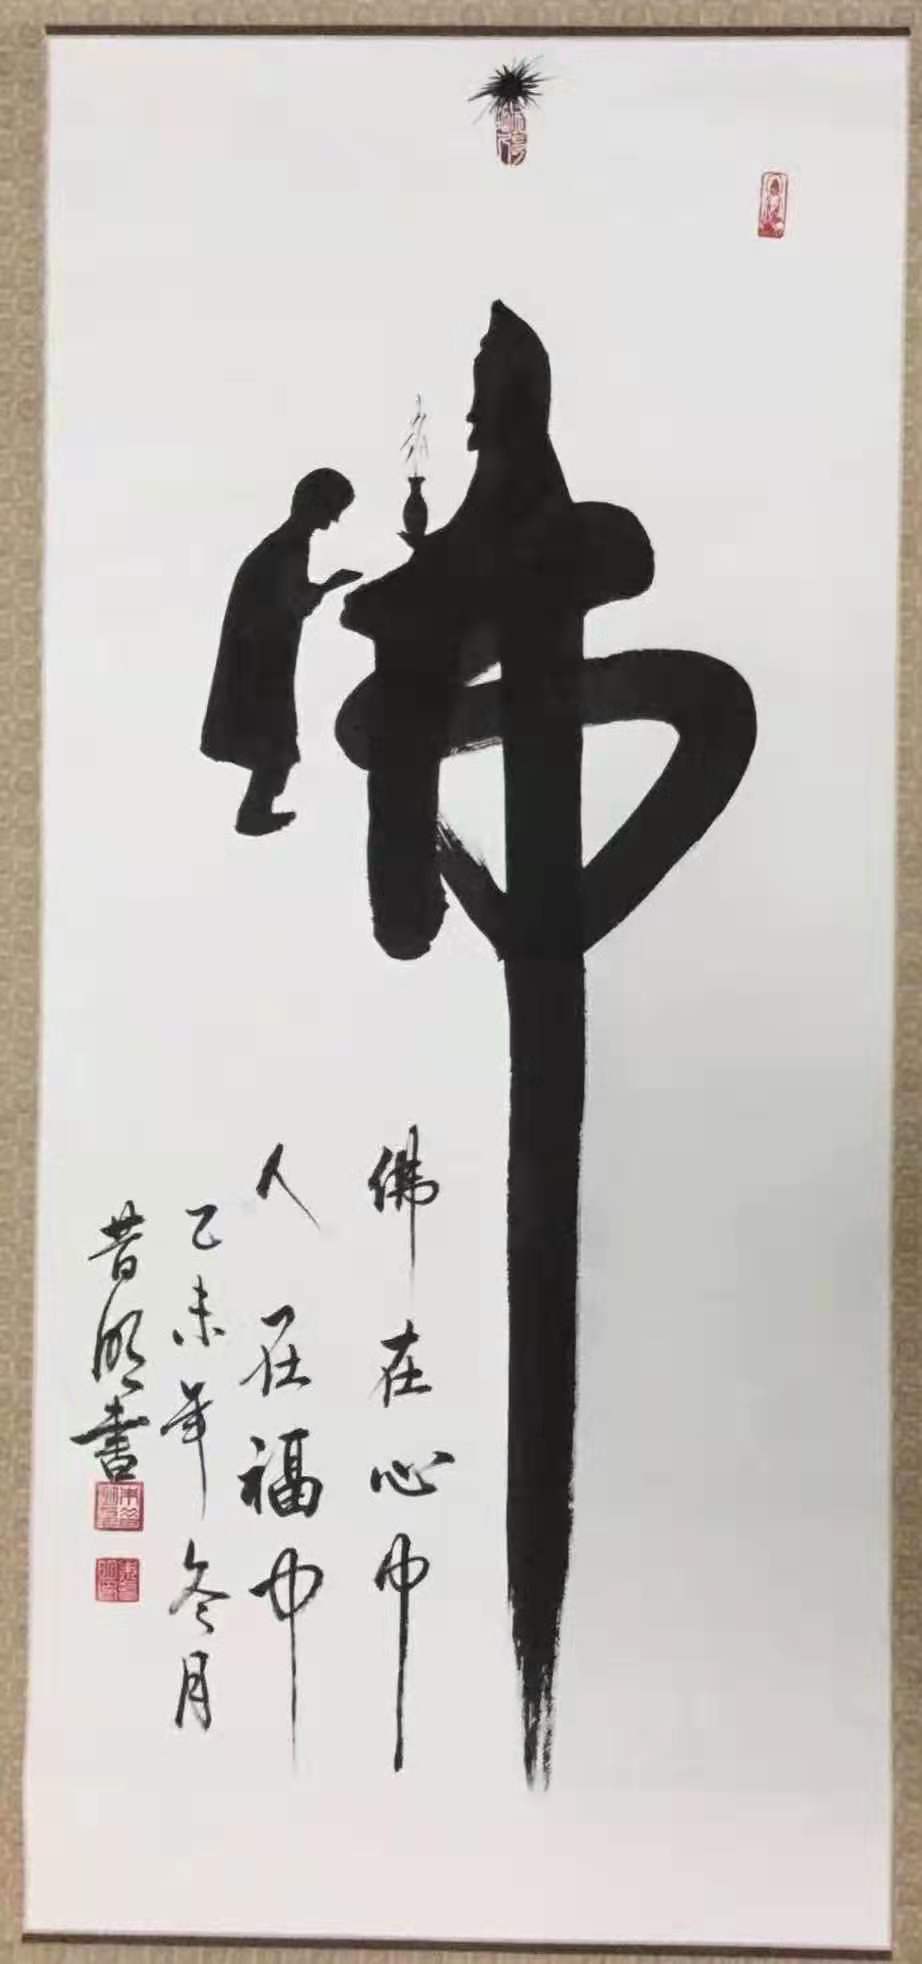 佛
佛在心中
人在福中
乙未年冬月
昔明書